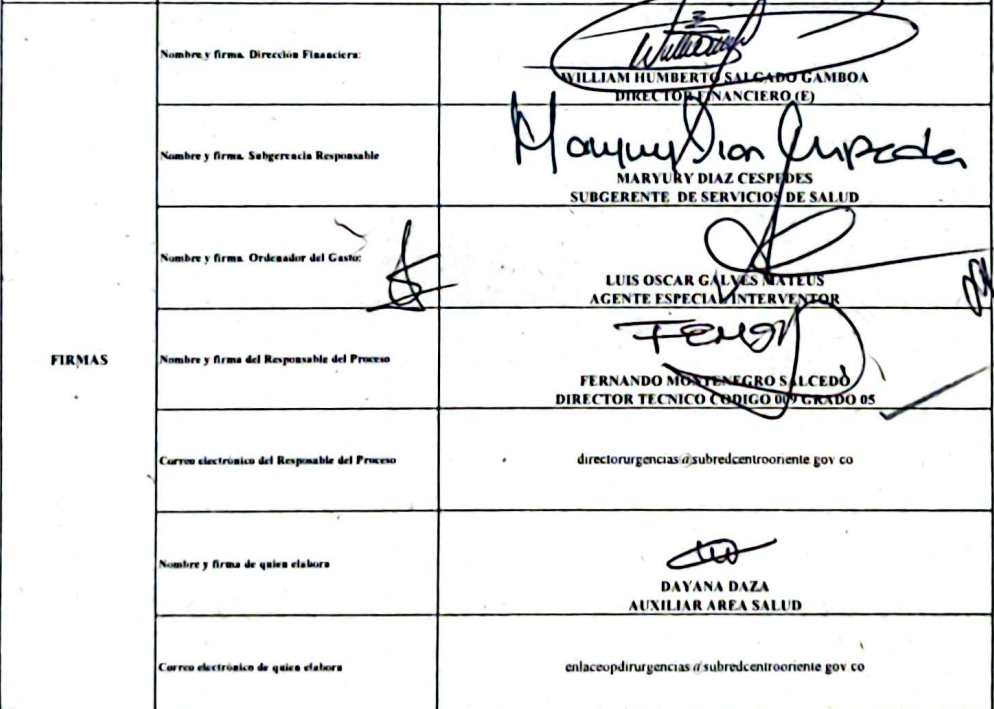 FIRMAS
Nombre y firma. Dirección Financiera:
WILLIAM HUMBERTO SALGADO GAMBOA
DIRECTOR FINANCIERO (E)
Nombre y firma. Subgerencia Responsable
Maryury Diaz
MARYURY DIAZ CESPEDES
SUBGERENTE DE SERVICIOS DE SALUD
Nombre y firma. Ordenador del Gasto:
LUIS OSCAR GALVES MATEUS
AGENTE ESPECIAL INTERVENTOR
Nombre y firma del Responsable del Proceso
FERNANDO MONTENEGRO SALCEDO
DIRECTOR TECNICO CODIGO 009 GRADO 05
Correo electrónico del Resposable del Proceso
directorurgencias@subredcentrooriente.gov.co
Nombre y firma de quien elabora
DAYANA DAZA
AUXILIAR AREA SALUD
Correo electrónico de quien elabora
enlaceopdirurgencias@subredcentrooriente.gov.co